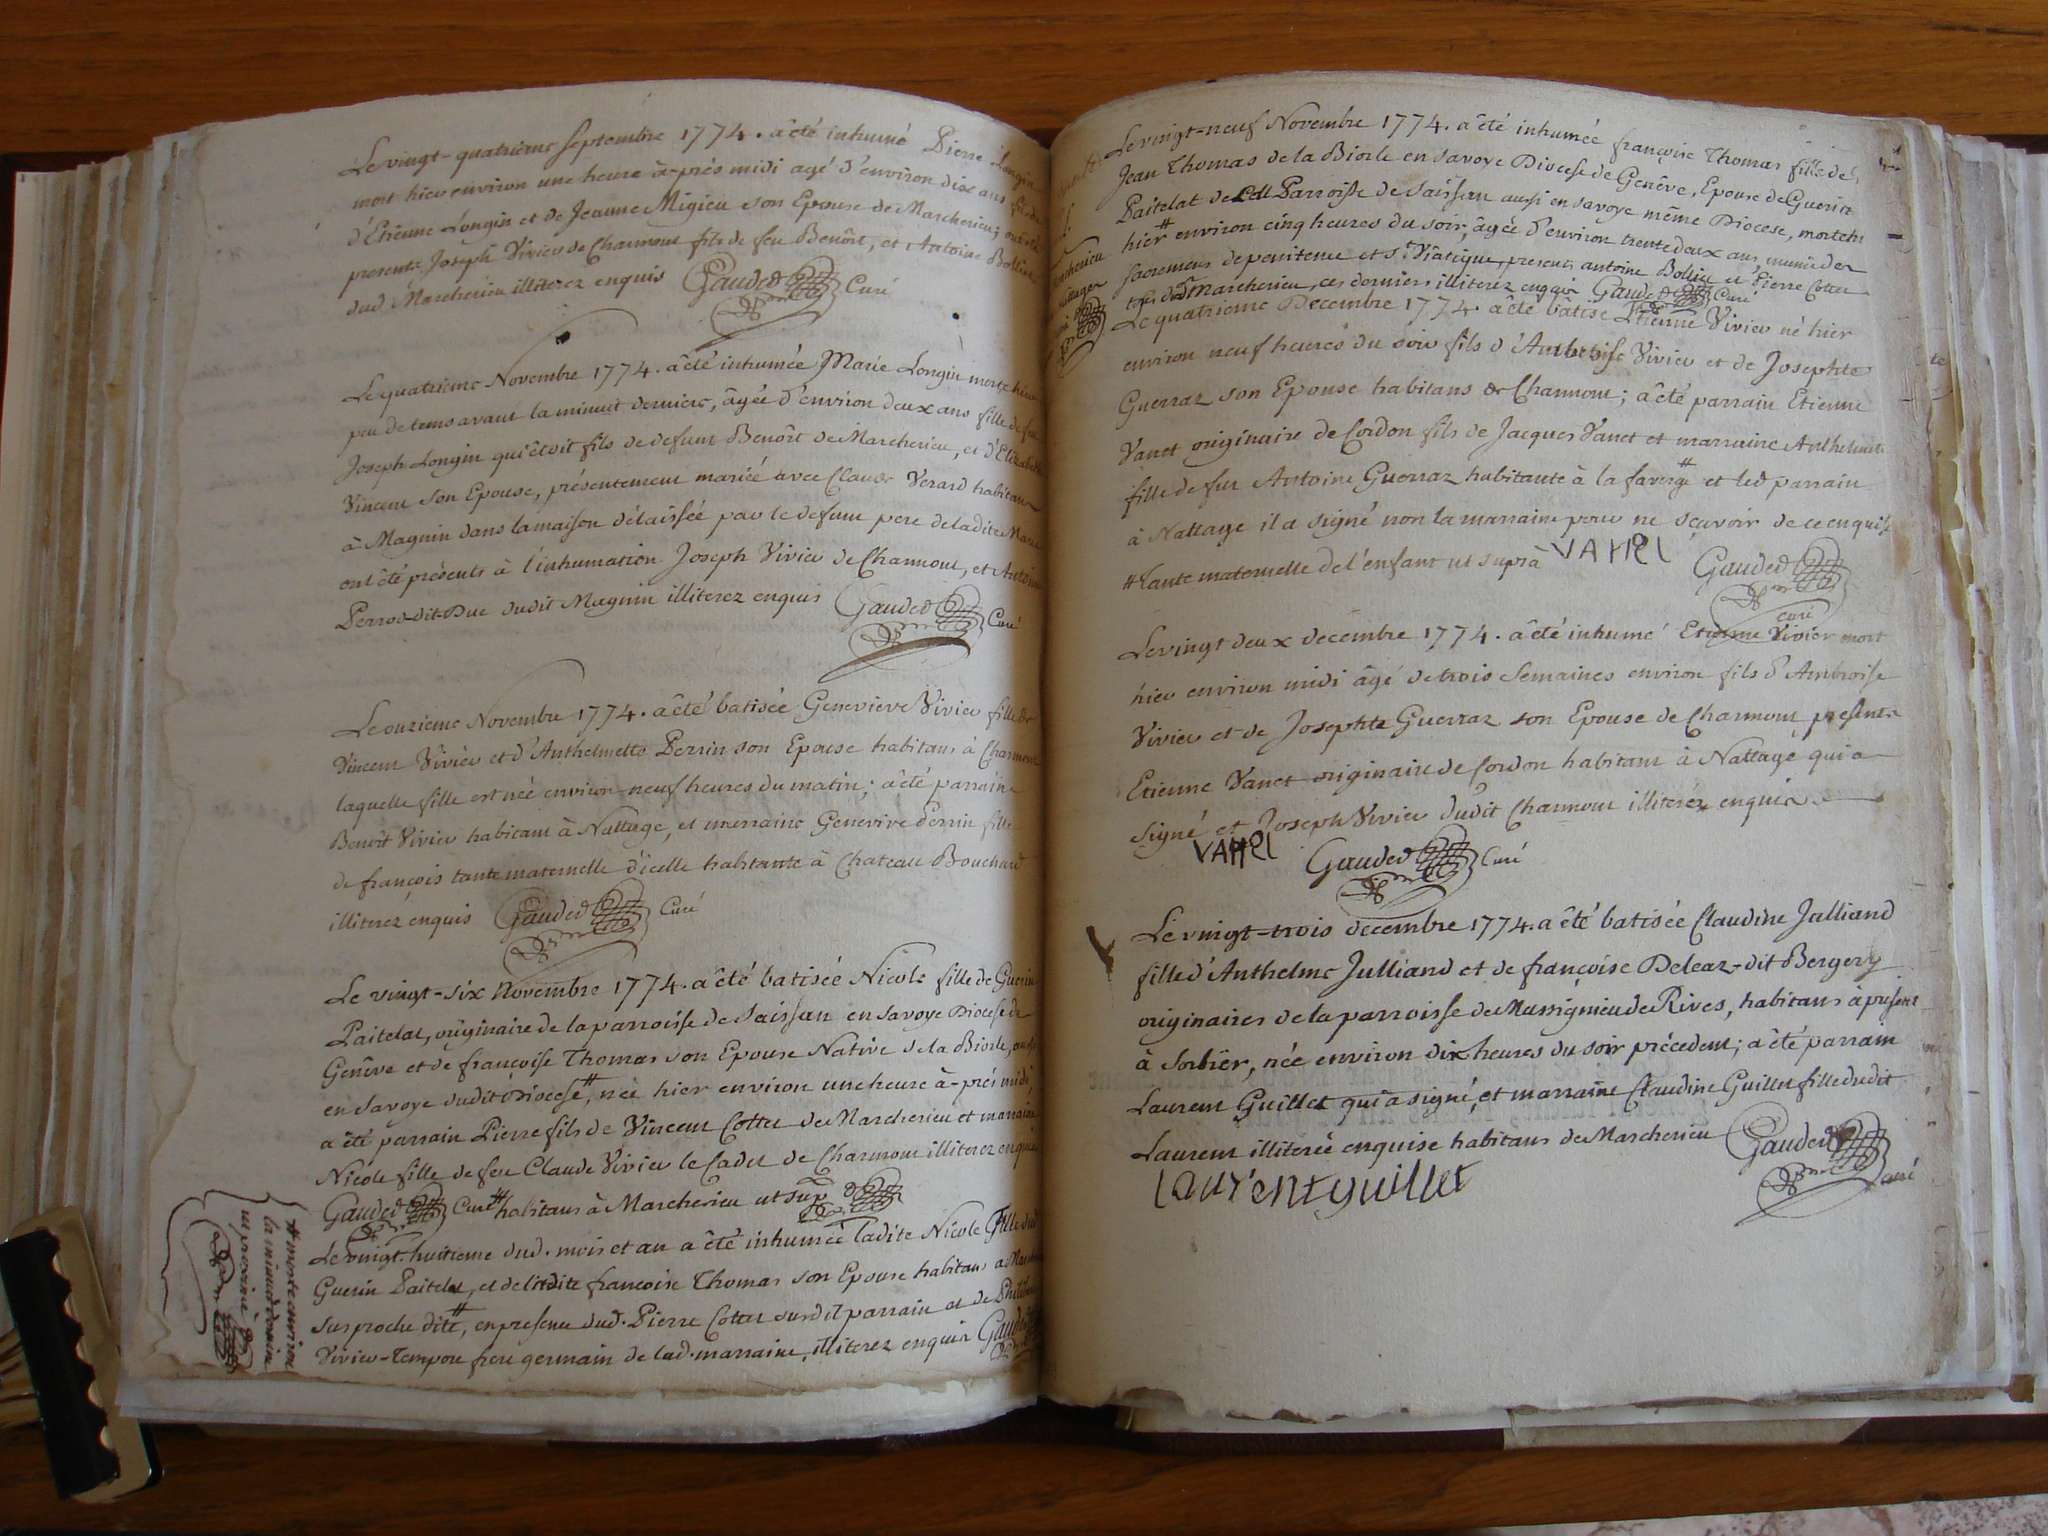 Le vingt-quatrieme Septembre 1774. a été inhumé Pierre Longin
mort hier environ une heure à-près midi agé d'environ dix ans fils
d'Etienne Longin et de Jeanne Migieu son Epouse de Marcherieu; ont été
presents Joseph Vivier de Charmont fils de feu Benôit, et Antoine Bollie
dud. Marcherieu illiterez enquis Gauded Curé
Le quatrieme Novembre 1774. a été inhumée Marie Longin morte hier
peu de tems avant la minuit derniere, âgée d'environ deux ans fille de feu
Joseph Longin qui étoit fils de defunt Benôit de Marcherieu, et d'Elizabeth
Vincent son Epouse, présentement mariée avec Claude Verard habitans
à Magnin dans la maison délaissée par le defunt pere de ladite Marie
ont été présents à l'inhumation Joseph Vivier de Charmont, et Antoine
Perrod-dit-Duc dudit Magnin illiterez enquis Gauded Curé
Le onzieme Novembre 1774. a été batisée Genevieve Vivier fille de
Vincent Vivier et d'Anthelmette Perrin son Epouse habitans à Charmont
laquelle fille est née environ neuf heures du matin; a été parrain
Benoît Vivier habitant à Nattage, et marraine Genevive Perrin fille
de françois tante maternelle d'icelle habitante à Chateau Bouchard
illiterez enquis Gauded Curé
Le vingt-six Novembre 1774. a été batisée Nicole fille de Guerin
Paitelat, originaire de la parroisse de Saissau en Savoye Diocese de
Genêve et de françoise Thomas son Epouse Native de la Biorle, aussi
en Savoye dudit Diocese#, née hier environ une heure à-près midi
a été parrain Pierre fils de Vincent Cottet de Marcherieu et marraine
Nicole fille de feu Claude Vivier le Cadet de Charmont illiterez enquis
Gauded Curé # habitans à Marcherieu ut sup
Le vingt-huitieme dud. mois et an a été inhumée ladite Nicole fille dud
Guerin Paitelat, et de ladite françoise Thomas son Epouse habitans à
susproche dite#, en presence dud. Pierre Cottet susdit parrain et de Philibert
Vivier-Tempon frere germain de lad. marraine, illiterez enquis Gauded
# morte environ
la minuit derniere
ut
Le vingt-neuf Novembre 1774. a été inhumée françoise Thomas fille de
Jean Thomas de la Biorle en Savoye Diocese de Genêve, Epouse de Guerin
Paitelat de Parroisse de Saissau aussi en Savoye même Diocese, morte
hier# environ cinq heures du soir, âgée d'environ trente deux ans, munie des
Sacremens de penitence et St. Viatique, presents antoine Bollie et Pierre Cottet
Marcherieu, ces derniers illiterez enquis Gauded Curé
Le quatrieme Decembre 1774. a été batisé Etienne Vivier né hier
environ neuf heures du soir fils d'Ambroise Vivier et de Josephte
Guerraz son Epouse habitans de Charmont; a été parrain Etienne
Vanet originaire de Cordon fils de Jacques Vanet et marraine Anthelmette
fille de feu Antoine Guerraz habitante à la faverge# et led parrain
à Nattage il a signé non la marraine pour ne sçavoir de ce enquise
# Tante maternelle de l'enfant ut suprà VANEt Gauded
curé
Le vingt deux decembre 1774. a été inhumé Etienne Vivier mort
hier environ midi âgé de trois semaines environ fils d'Ambroise
Vivier et de Josephte Guerraz son Epouse de Charmont, presents
Etienne Vanet originaire de Cordon habitant à Nattage qui a
signé et Joseph Vivier dudit Charmont illiterez enquis
VANEt Gauded Curé
Le vingt-trois decembre 1774. a été batisée Claudine Julliand
fille d'Anthelme Julliand et de françoise Deleaz-dit Bergery
originaires de la parroisse de Massignieu de Rives, habitans à présent
à Sorbier, née environ dix heures du soir précedent; a été parrain
Laurent Guillet qui a signé, et marraine Claudine Guillet fille dudit
Laurent illiterée enquise habitans de Marcherieu Gauded
curé
laurent guillet